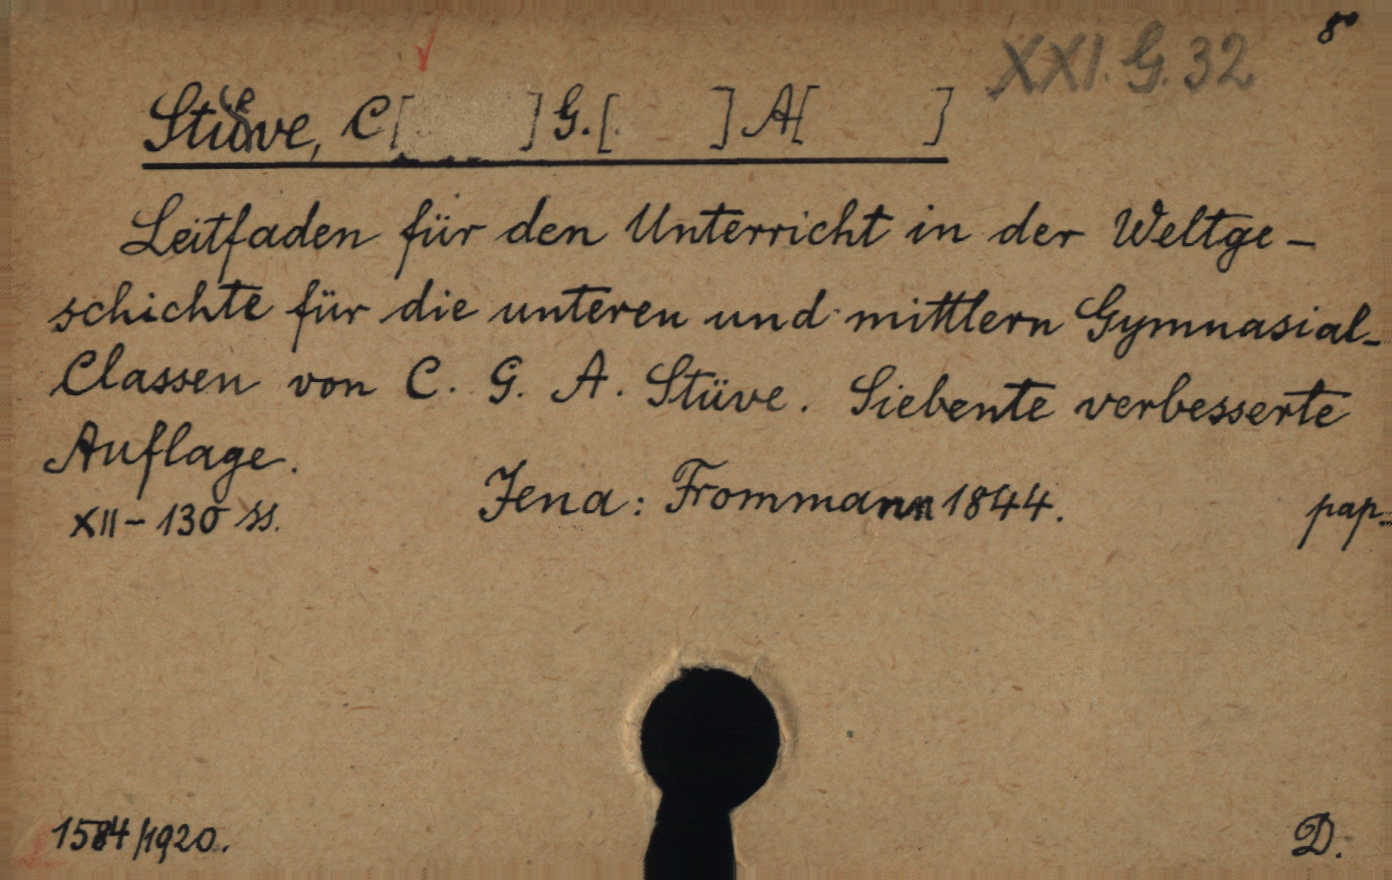 8°
XXI. G. 32
Stüve, C[ ] G. [ ] A[ ]
Leitfaden für den Unterricht in der Weltge-
schichte für die unteren und mittlern Gymnasial-
Classen von C. G. A. Stüve. Siebente verbesserte
Auflage.
Jena: Frommann 1844.
XII - 130 ss.
pap.
1584/1920.
D.